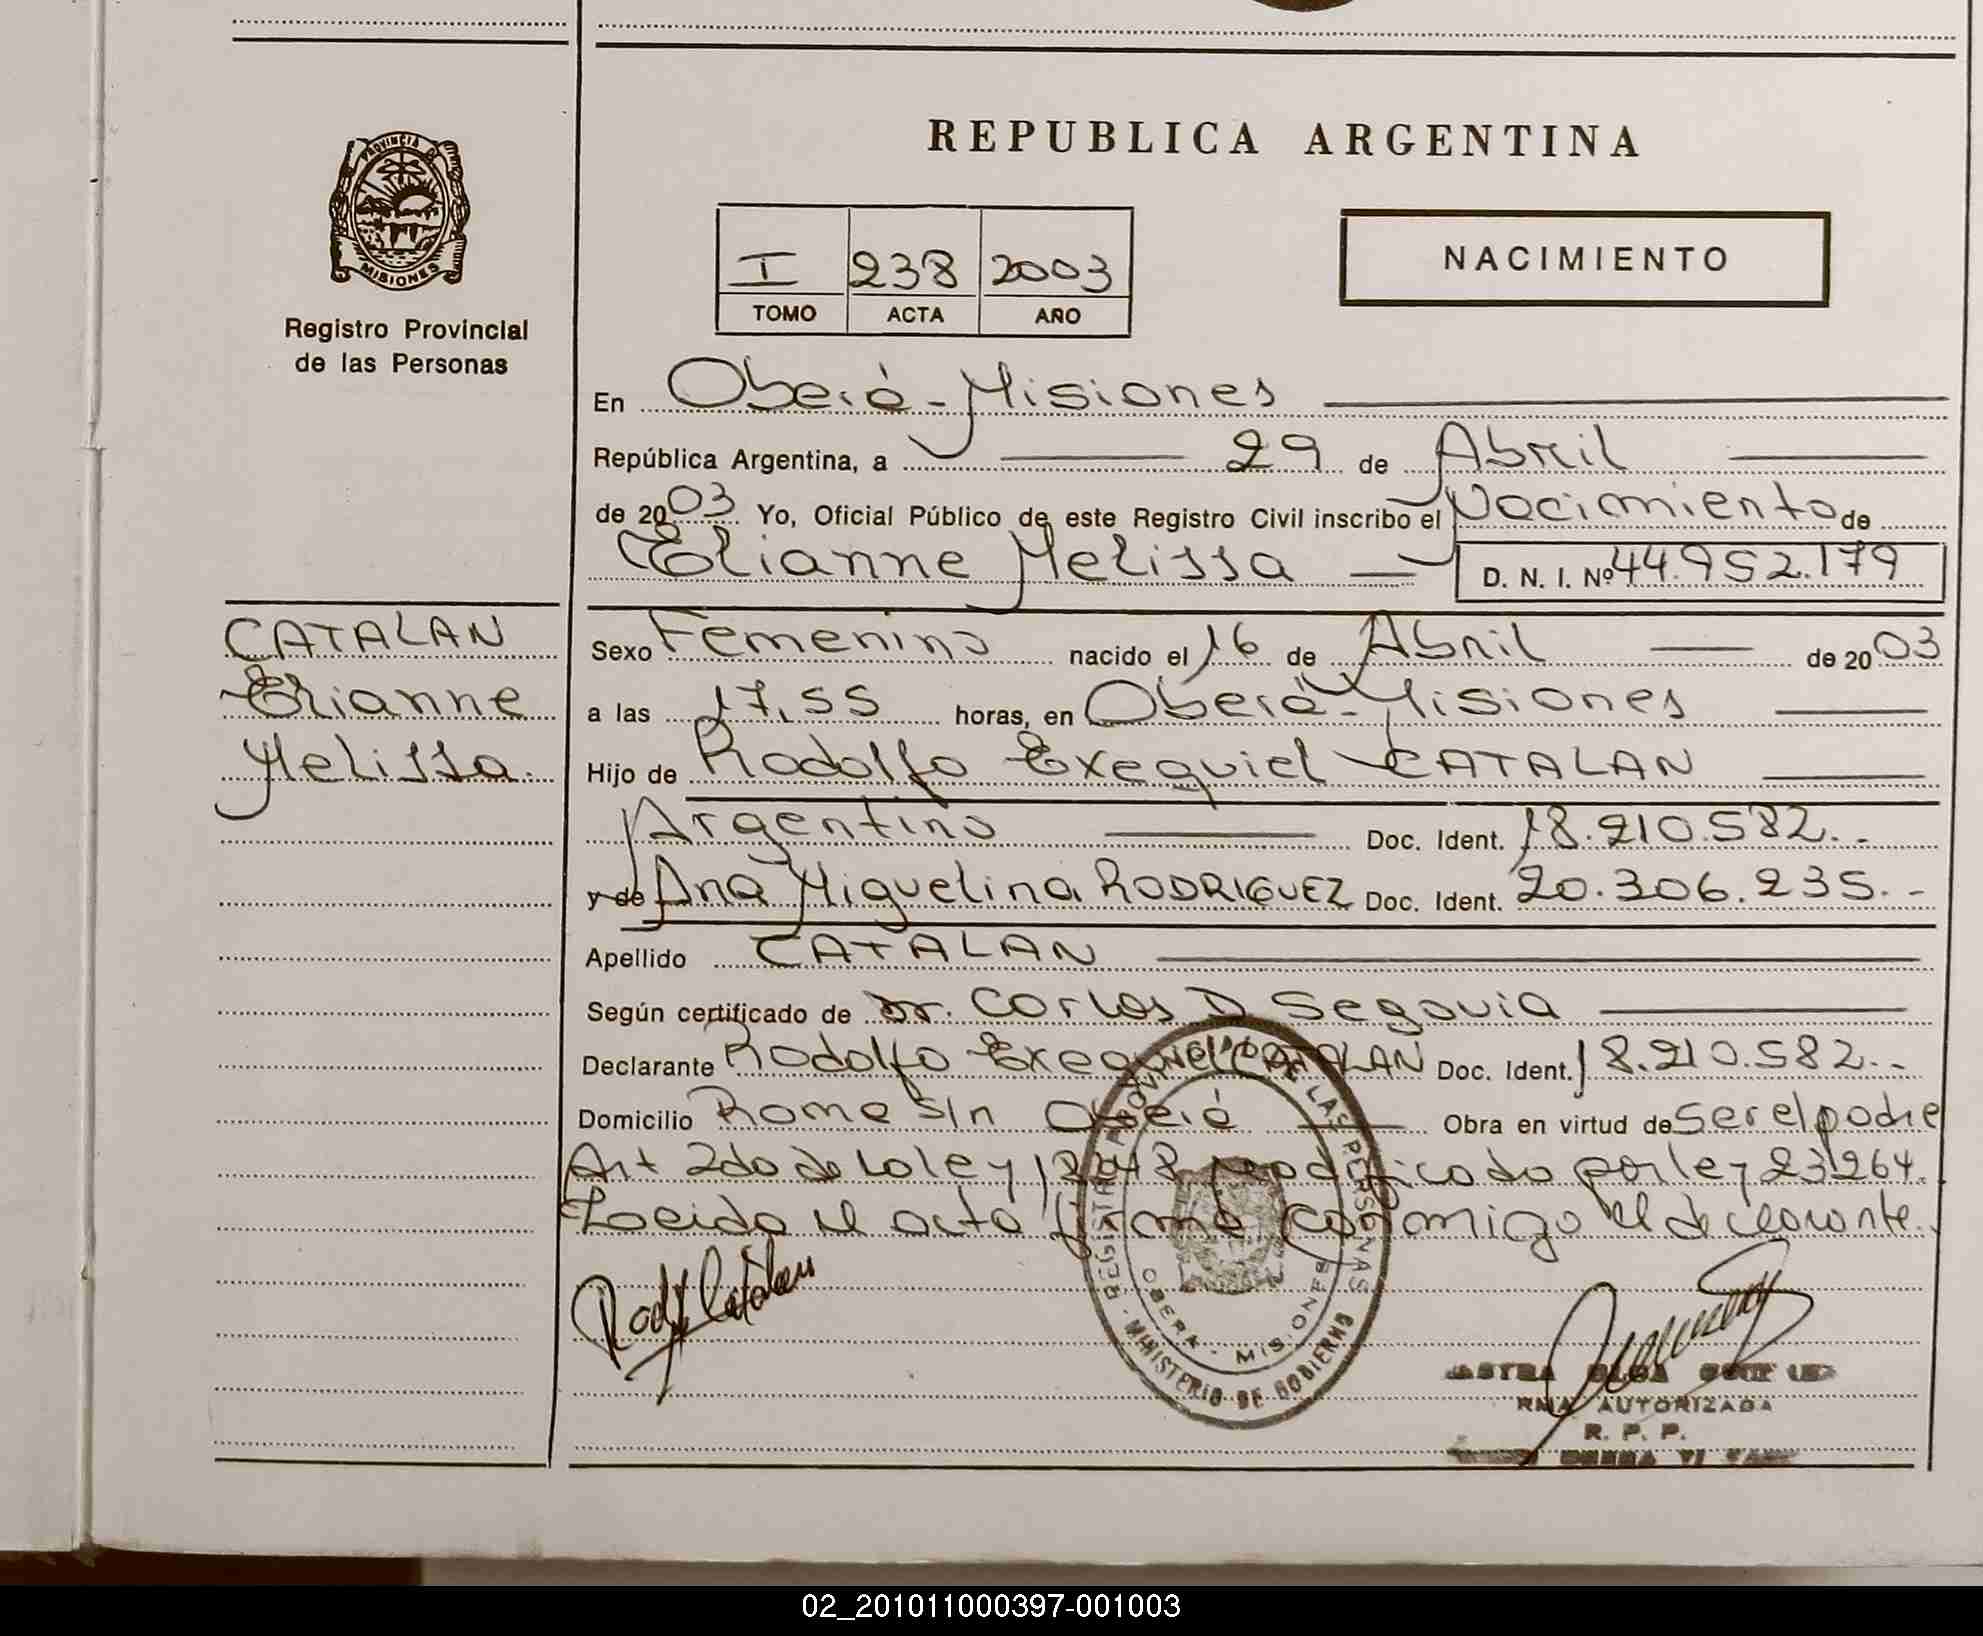 REPUBLICA ARGENTINA
PROVINCIA DE
MISIONES
Registro Provincial
de las Personas
I 238 2003
TOMO ACTA AÑO
NACIMIENTO
En Oberá - Misiones
República Argentina, a 29 de Abril
de 2003 Yo, Oficial Público de este Registro Civil inscribo el Nacimiento de
Elianne Melissa D. N. I. Nº 44.952.179
CATALAN
Elianne
Melissa.
Sexo Femenino nacido el 16 de Abril de 2003
a las 17,55 horas, en Oberá - Misiones
Hijo de Rodolfo Exequiel CATALAN
Argentino Doc. Ident. 18.210.582.-
y de Ana Miguelina RODRIGUEZ Doc. Ident. 20.306.235.-
Apellido CATALAN
Según certificado de Dr. Carlos D Segovia
Declarante Rodolfo Exequiel CATALAN Doc. Ident. 18.210.582.-
Domicilio Roma S/n Oberá Obra en virtud de ser el padre
Art 2do de la ley 18248 modificado por ley 23264.
Leida el acta firma conmigo el declarante.
Rody Catalan
REGISTRO PROVINCIAL DE LAS PERSONAS
OBERA - MISIONES
MINISTERIO DE GOBIERNO
OLGA
AUTORIZADA
R. P. P.
02_201011000397-001003